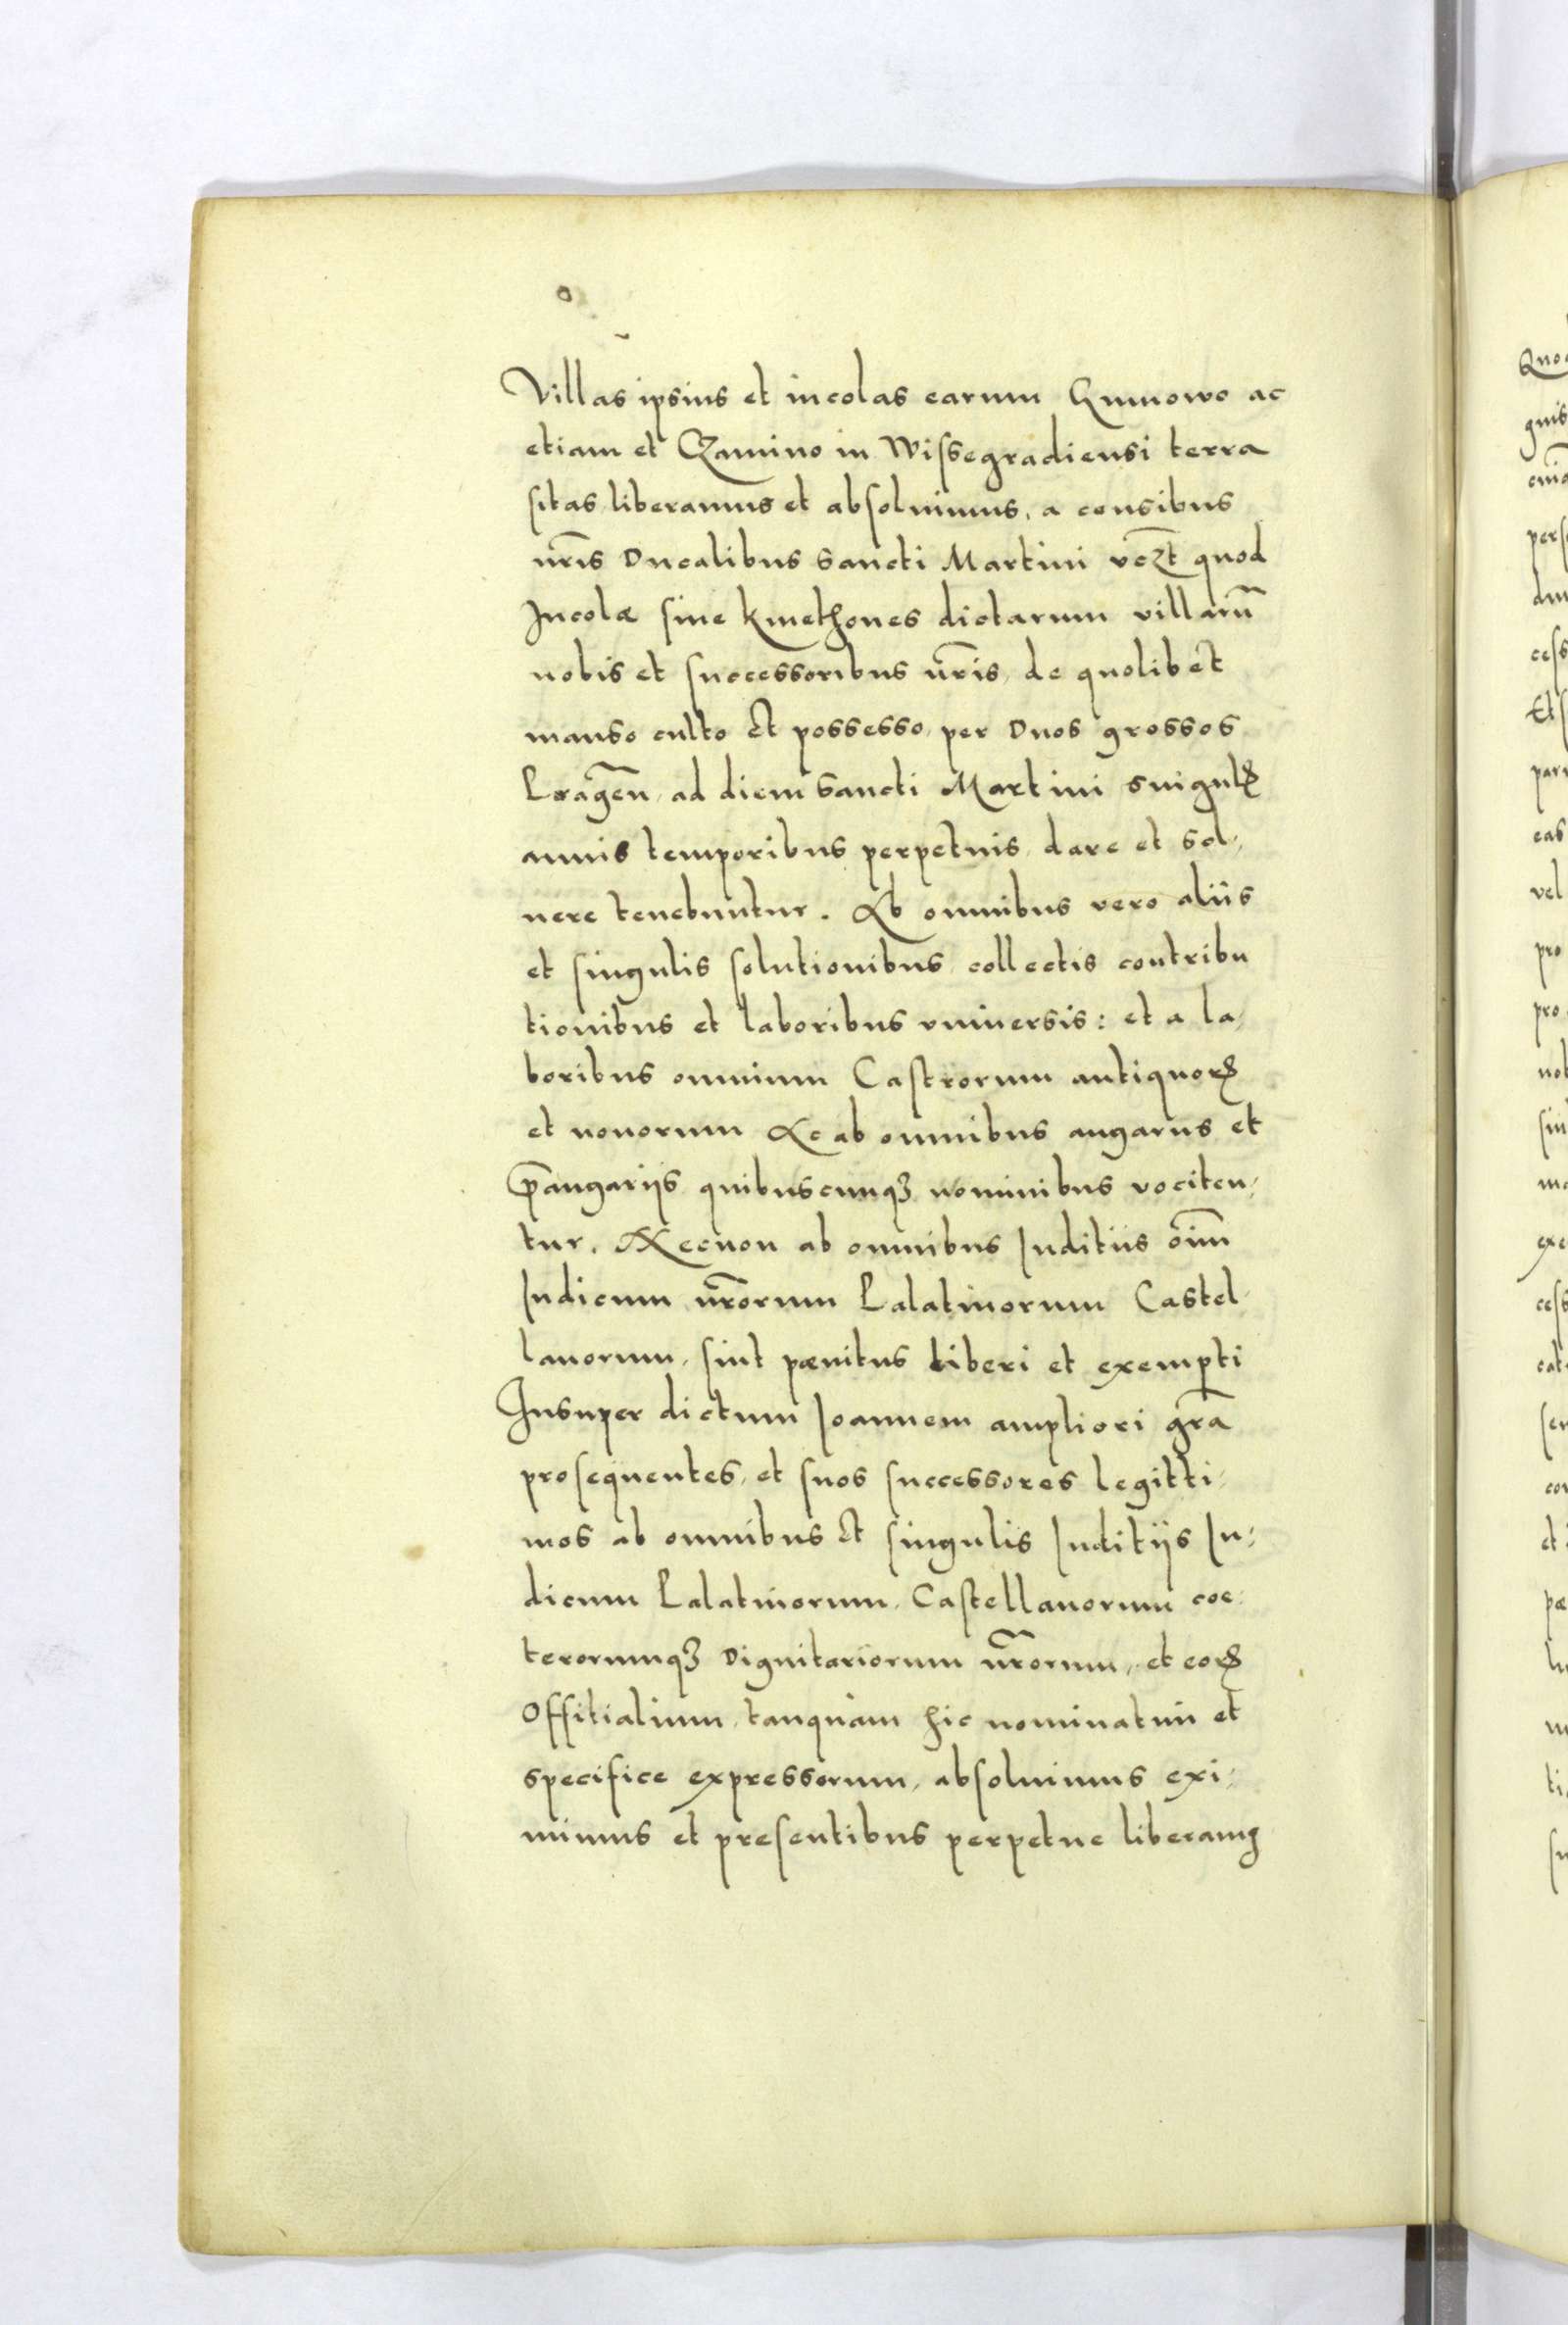 Villas ipsius et incolas earum Gumowo ac
etiam et Czamino in Wissegradiensi terra
sitas liberamus et absoluimus, a censibus
nr̃is Ducalibus Sancti Martini vcz̃t quod
Incolæ siue kmethones dictarum villarũ
nobis et successoribus nr̃is, de quolibet
manso culto et possesso, per Duos grossos
Pragen̄, ad diem Sancti Martini singulꝭ
annis temporibus perpetuis, dare et sol,
uere tenebuntur. Ab omnibus vero aliis
et singulis solutionibus, collectis contribu
tionibus et laboribus vniuersis: et a la,
boribus omnium Castrorum antiquoꝝ
et nouorum Ac ab omnibus angariis et
p̄angariis quibuscunqꝫ nominibus vociten,
tur. Necnon ab omnibus Iuditiis oīm
Iudicum nr̃orum Palatinorum Castel,
lanorum, sint pænitus liberi et exempti
Insuper dictum Ioannem ampliori gr̃a
prosequentes, et suos successores legitti,
mos ab omnibus et singulis Iuditiis Iu,
dicum Palatinorum, Castellanorum coe,
terorumqꝫ Dignitariorum nr̃orum, et eoꝝ
Offitialium, tanquam hic nominatim et
specifice expressorum, absoluimus exi,
mimus et presentibus perpetue liberamꝯ